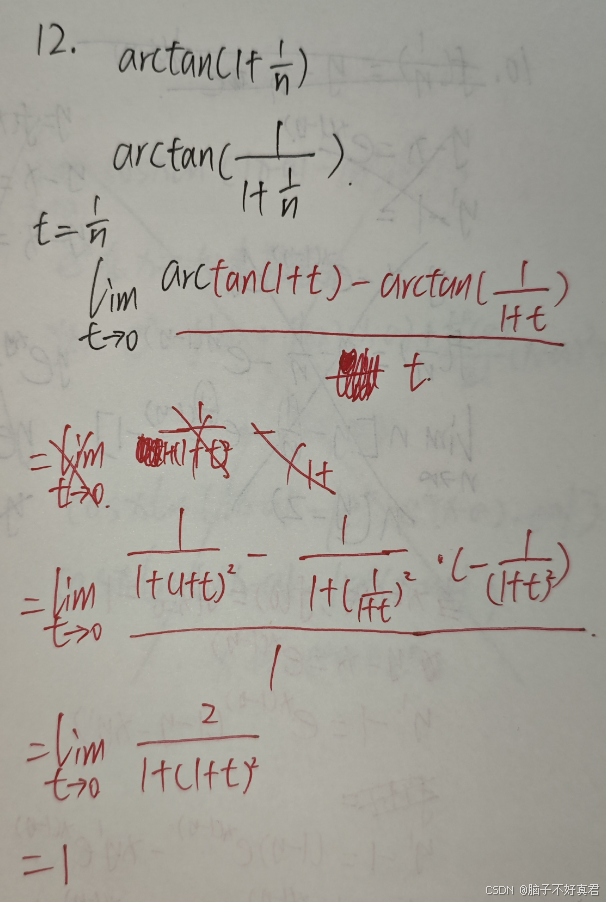 12. arctan(1+1/n)
arctan(1/(1+1/n)).
t=1/n
lim t→0 (arctan(1+t)-arctan(1/(1+t)))/t.
=lim t→0 (1/(1+(1+t)²) - 1/(1+(1/(1+t))²)·(-1/(1+t)²))/1.
=lim t→0 2/(1+(1+t)²)
=1
CSDN @脑子不好真君